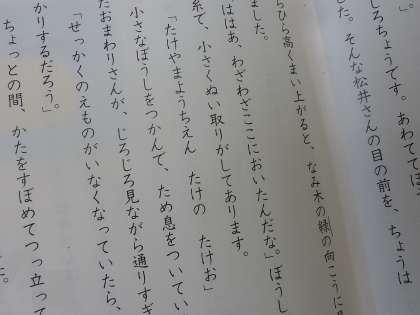 」。
しろちょうです。あわててぼ
した。そんな松井さんの目の前を、ちょうは
らひら高くまい上がると、なみ木の緑の向こうに
ました。
ははあ、わざわざここにおいたんだな。」ぼうし
糸で、小さくぬい取りがしてあります。
「たけやまようちえん たけの たけお」
小さなぼうしをつかんで、ため息をついてい
たおまわりさんが、じろじろ見ながら通りすぎ
「せっかくのえものがいなくなっていたら、
かりするだろう」
ちょっとの間、かたをすぼめてつっ立って
た。